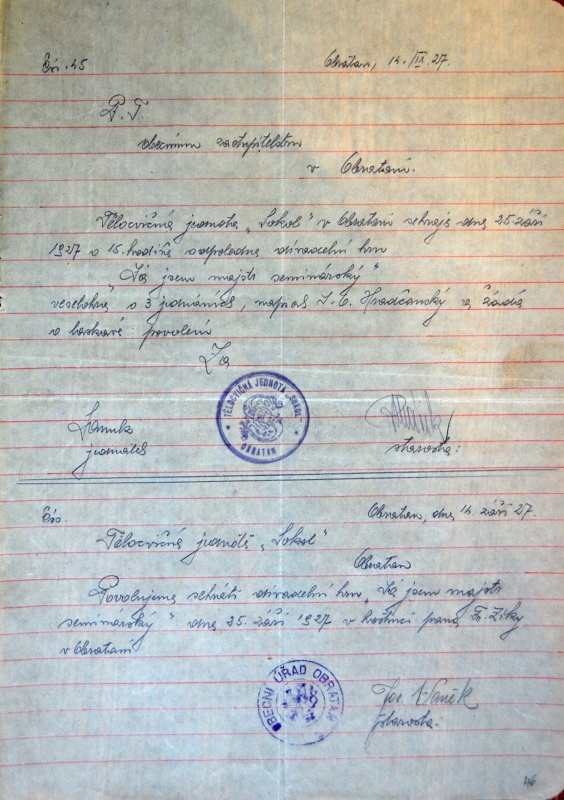 Čís. 45
Obrataň, 14./IX.27.
P. T.
obecnímu zastupitelstvu
v Obratani.
Tělocvičná jednota „Sokol" v Obratani sehraje dne 25. září
1927 o 15. hodině odpoledne divadelní hru
„Já jsem majstr seminárský"
veselohra o 3 jednáních, napsal J. C. Hradčanský a žádá
o laskavé povolení
Za
TĚLOCVIČNÁ JEDNOTA „SOKOL"
OBRATAŇ
jednatel
starosta:
Čís.
Obrataň, dne 14. září 27.
Tělocvičné jednotě „Sokol"
Obrataň
Povolujeme sehráti divadelní hru „Já jsem majstr
seminárský" dne 25. září 1927 v hostinci pana F. Ziky
v Obratani
OBECNÍ ÚŘAD OBRATAŇ
Jos. Vaněk
starosta:
46